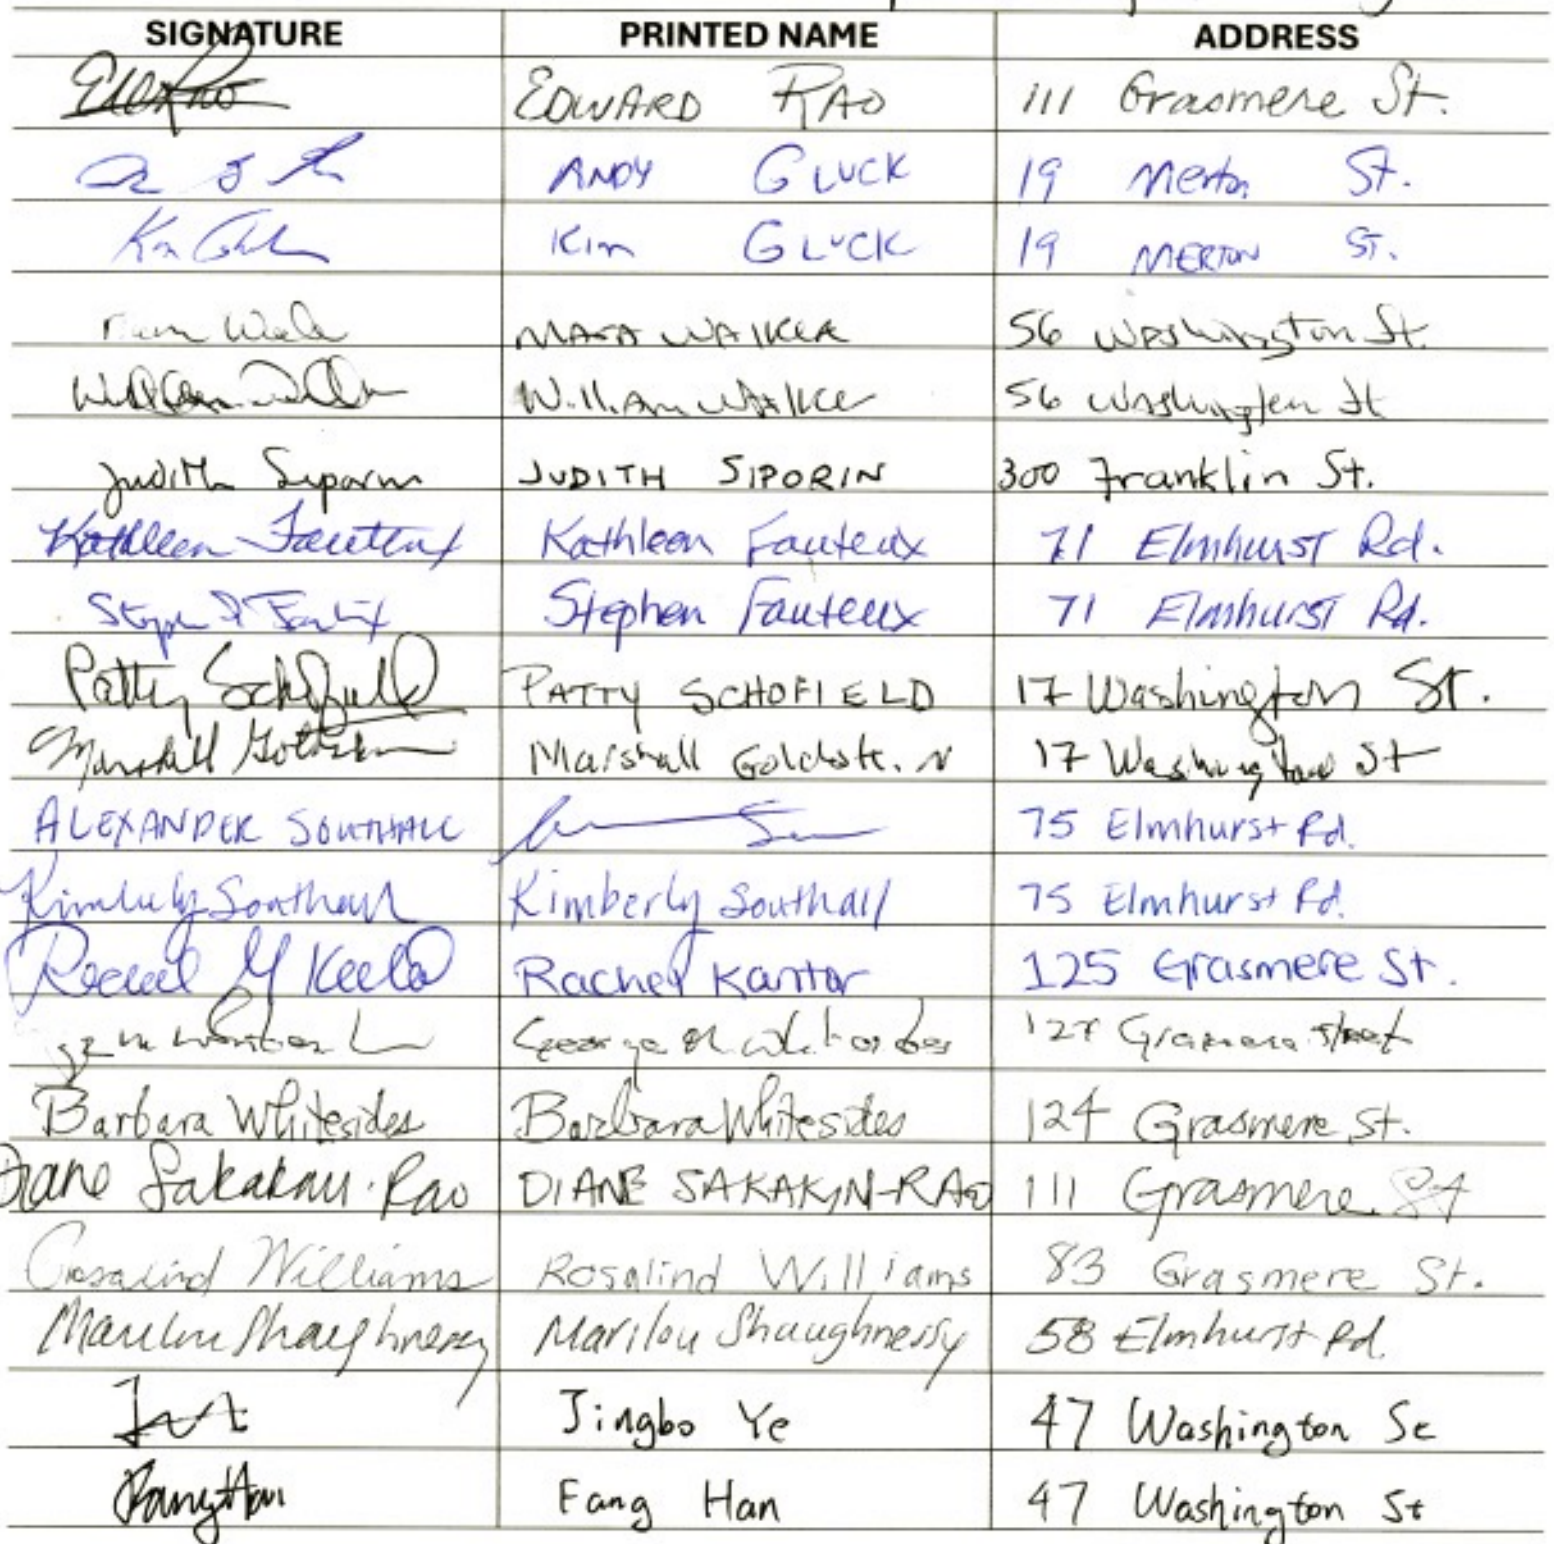 SIGNATURE PRINTED NAME ADDRESS
EDWARD RAO 111 Grasmere St.
ANDY GLUCK 19 Merton St.
Kim GLUCK 19 MERTON ST.
MARA WALKER 56 Washington St.
William Walker 56 Washington St
Judith Siporin JUDITH SIPORIN 300 Franklin St.
Kathleen Fauteux Kathleen Fauteux 71 Elmhurst Rd.
Stephen Fauteux 71 Elmhurst Rd.
Patty Schofield PATTY SCHOFIELD 17 Washington St.
Marshall Goldstein 17 Washington St
ALEXANDER SOUTHALL 75 Elmhurst Rd.
Kimberly Southall Kimberly Southall 75 Elmhurst Rd.
Rachel Kantor 125 Grasmere St.
George Grasmere street
Barbara Whitesides Barbara Whitesides 124 Grasmere St.
Diane DIANE SAKAKINI-RAO 111 Grasmere St
Rosalind Williams Rosalind Williams 83 Grasmere St.
Marilou Shaughnessy Marilou Shaughnessy 58 Elmhurst Rd.
Jingbo Ye 47 Washington St
Fang Han Fang Han 47 Washington St